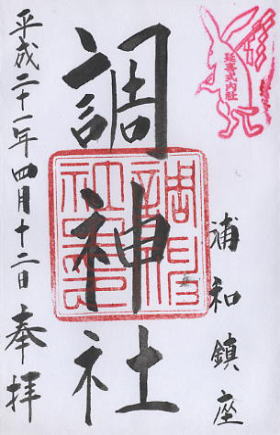 延喜式内社
浦和鎮座
調神社
平成二十一年四月十二日奉拝